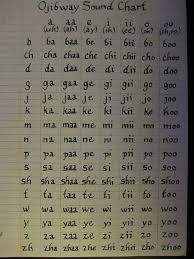 Ojibway Sound Chart
a aa e i ii o oo
(uh) (ah) (ay) (ih) (ee)
b ba baa be bi bii bo boo
ch cha chaa che chi chii cho choo
d da daa de di dii do doo
g ga gaa ge gi gii go goo
j ja jaa je ji jii jo joo
k ka kaa ke ki kii ko koo
m ma maa me mi mii mo moo
n na naa ne ni nii no noo
p pa paa pe pi pii po poo
s sa saa se si sii so soo
sh sha shaa she shi shii sho shoo
t ta taa te ti tii to too
w wa waa we wi wii wo woo
y ya yaa ye yi yii yo yoo
z za zaa ze zi zii zo zoo
zh zha zhaa zhe zhi zhii zho zhoo